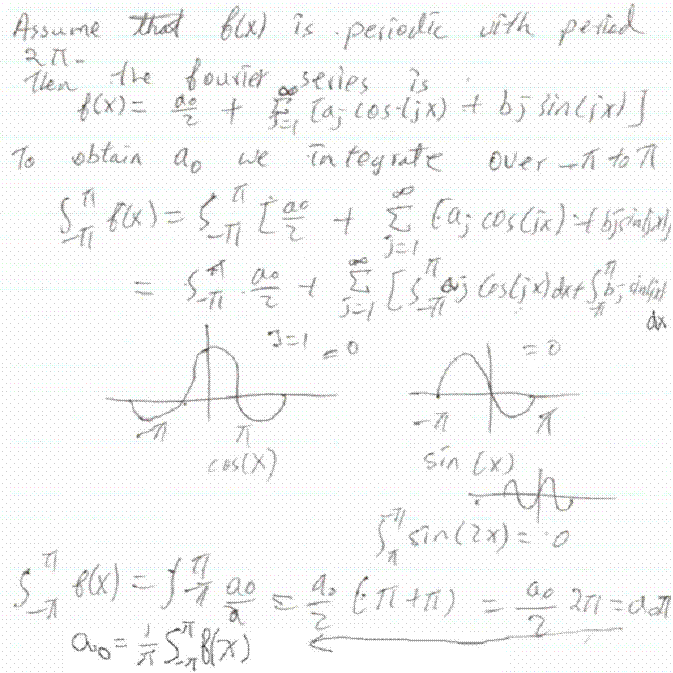 Assume that f(x) is periodic with period
2π.
Then the fourier series is
f(x) = a₀/2 + ∑_{j=1}^{∞} [aj cos(jx) + bj sin(jx)]
To obtain a₀ we integrate over -π to π
∫_{-π}^{π} f(x) = ∫_{-π}^{π} [a₀/2 + ∑_{j=1}^{∞} [aj cos(jx) + bj sin(jx)]
= ∫_{-π}^{π} a₀/2 + ∑_{j=1}^{∞} [∫_{-π}^{π} aj cos(jx) dx + ∫_{-π}^{π} bj sin(jx)
dx
J=1 = 0
= 0
-π π
-π π
cos(x)
sin(x)
∫_{π}^{-π} sin(2x) = 0
∫_{-π}^{π} f(x) = ∫_{-π}^{π} a₀/2 = a₀/2 (π+π) = a₀/2 2π = a₀π
a₀ = 1/π ∫_{-π}^{π} f(x)